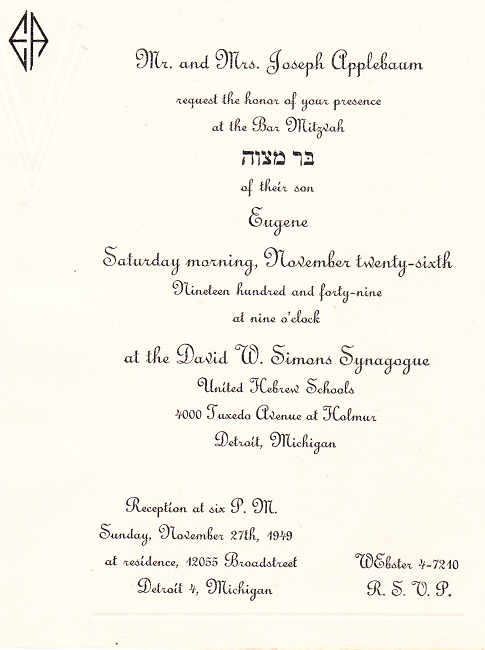 EA
Mr. and Mrs. Joseph Applebaum
request the honor of your presence
at the Bar Mitzvah
בר מצוה
of their son
Eugene
Saturday morning, November twenty-sixth
Nineteen hundred and forty-nine
at nine o'clock
at the David W. Simons Synagogue
United Hebrew Schools
4000 Tuxedo Avenue at Holmur
Detroit, Michigan
Reception at six P. M.
Sunday, November 27th, 1949
at residence, 12055 Broadstreet
Detroit 4, Michigan
WEbster 4-7210
R. S. V. P.